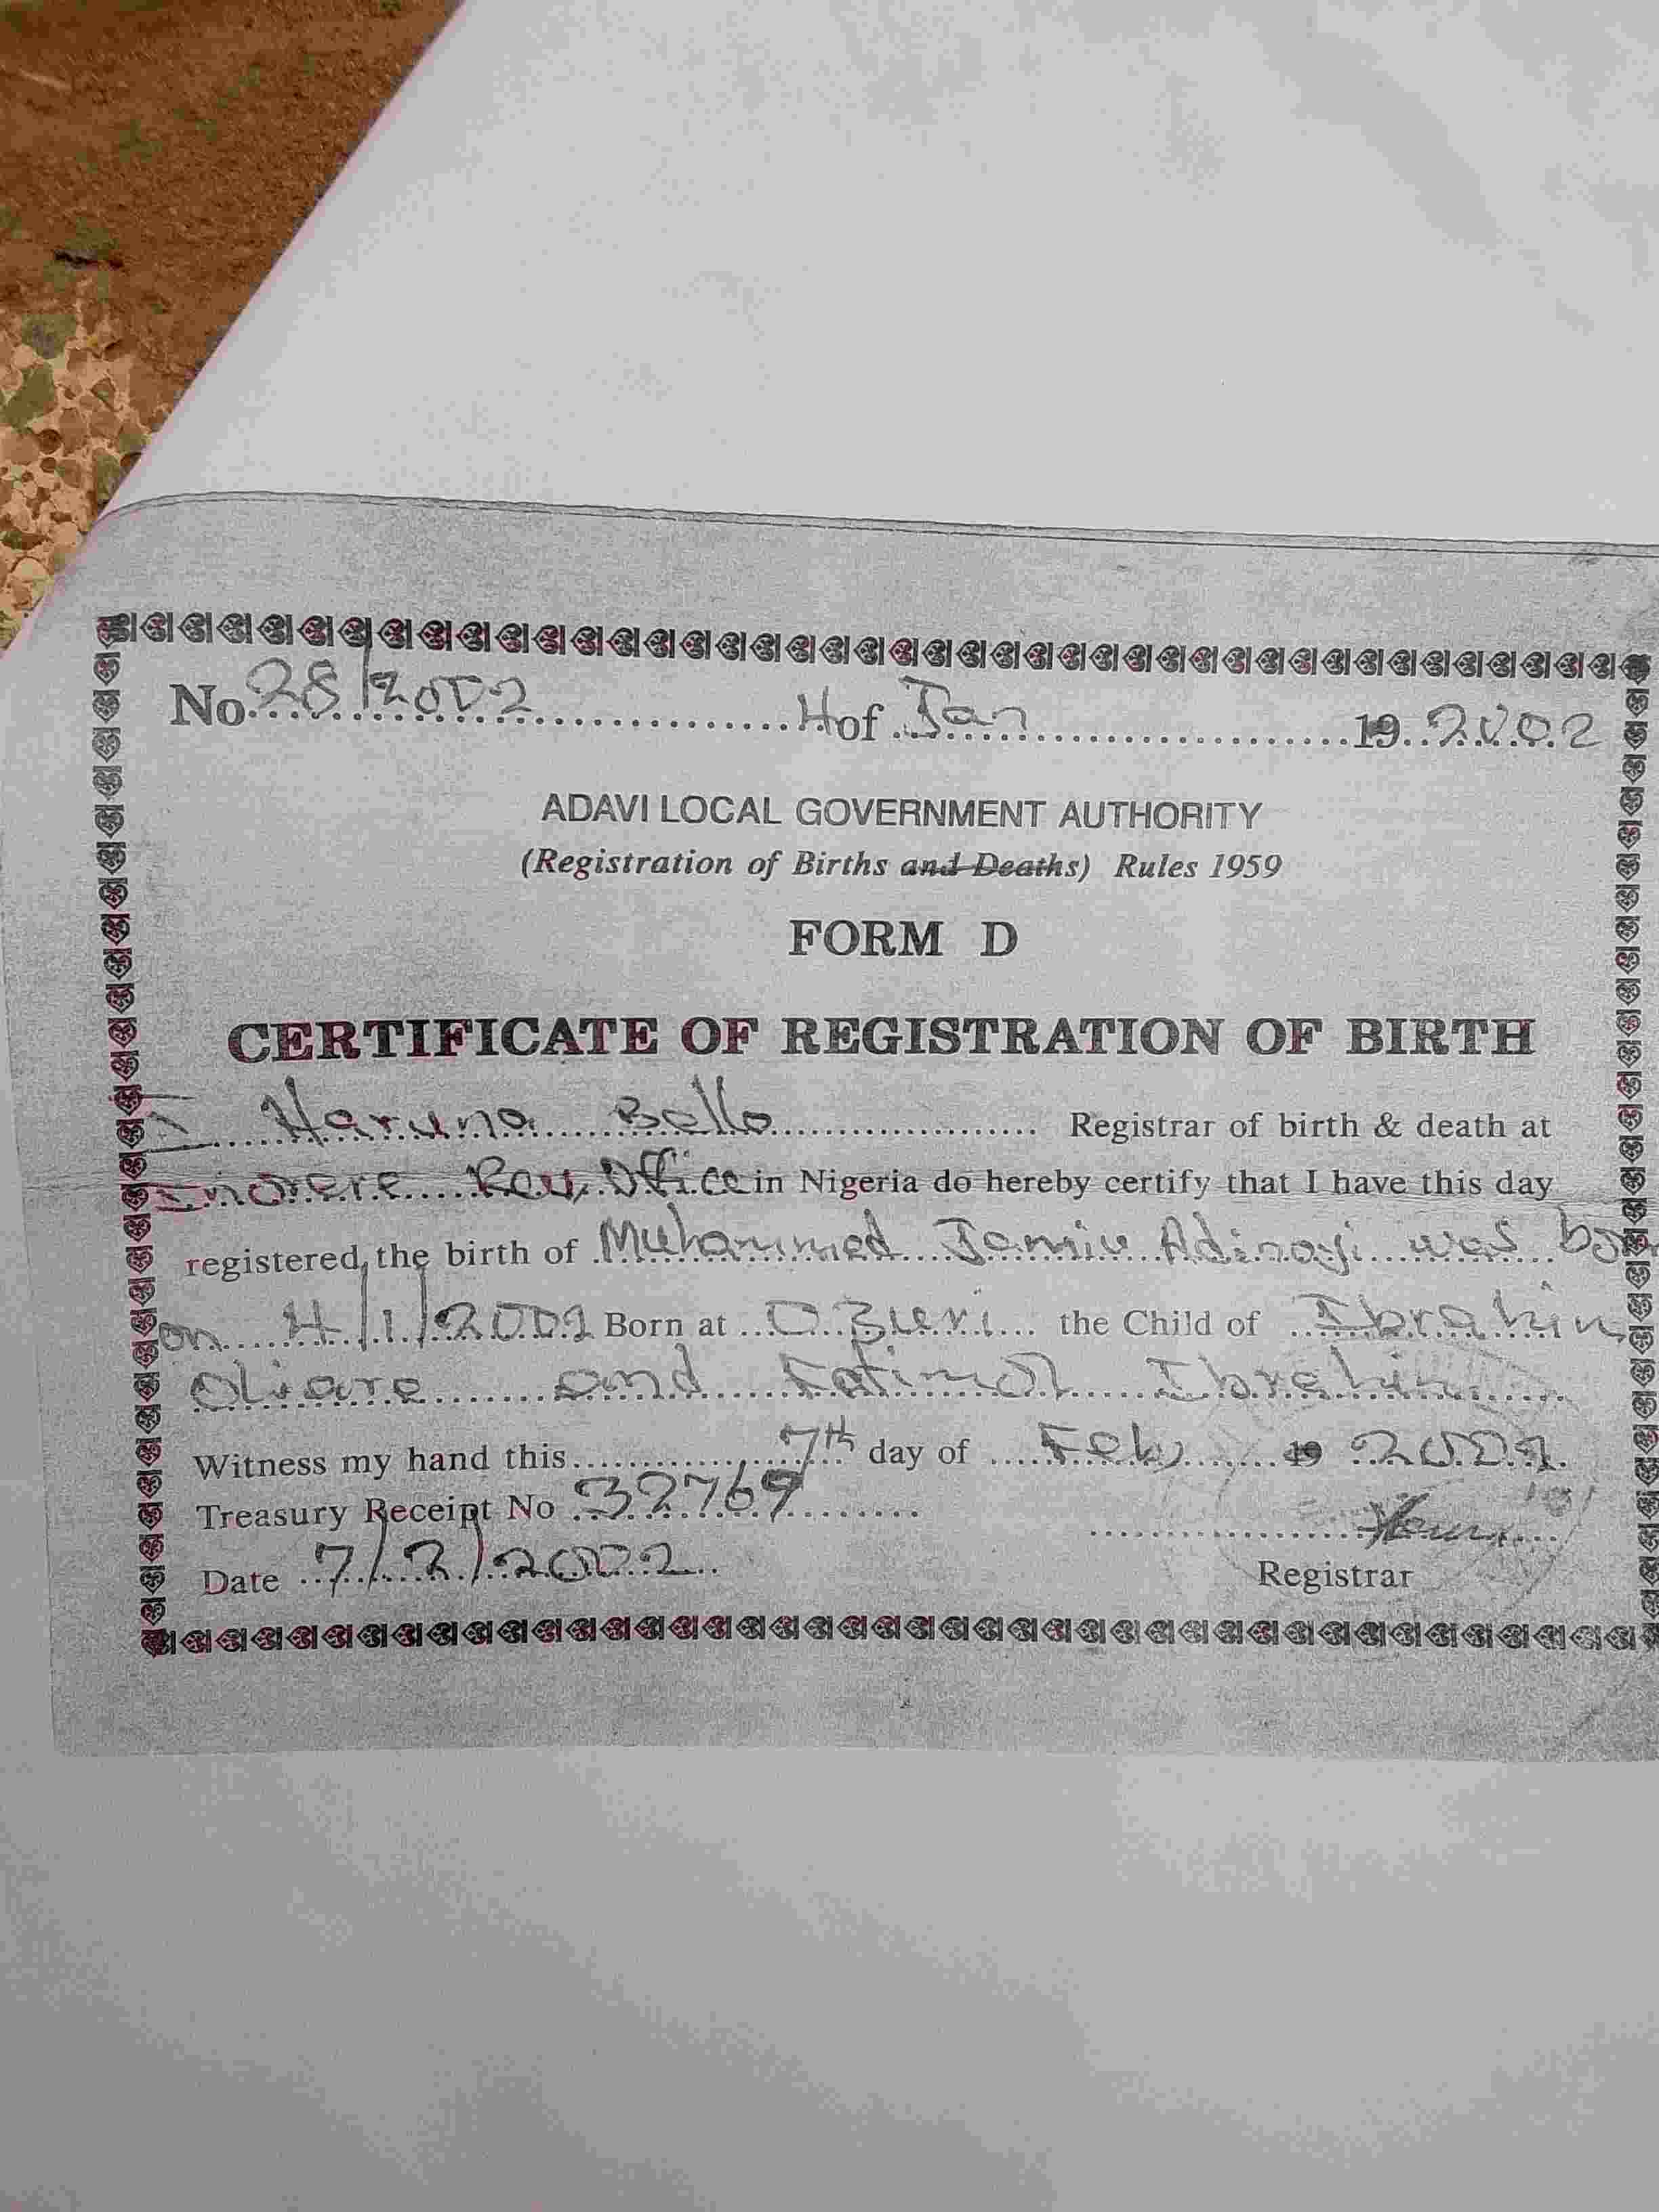 No 28/2002 4 of Jan 19 2002
ADAVI LOCAL GOVERNMENT AUTHORITY
(Registration of Births and Deaths) Rules 1959
FORM D
CERTIFICATE OF REGISTRATION OF BIRTH
I Haruna Bello Registrar of birth & death at
Inorere Rev. Office in Nigeria do hereby certify that I have this day
registered the birth of Muhammed Jamiu Adinoyi was born
on 4/1/2002 Born at Ozuri the Child of Ibrahim
and Fatimat Ibrahim
Witness my hand this 7th day of Feb 19 2002
Treasury Receipt No 32769
Date 7/2/2002
Registrar